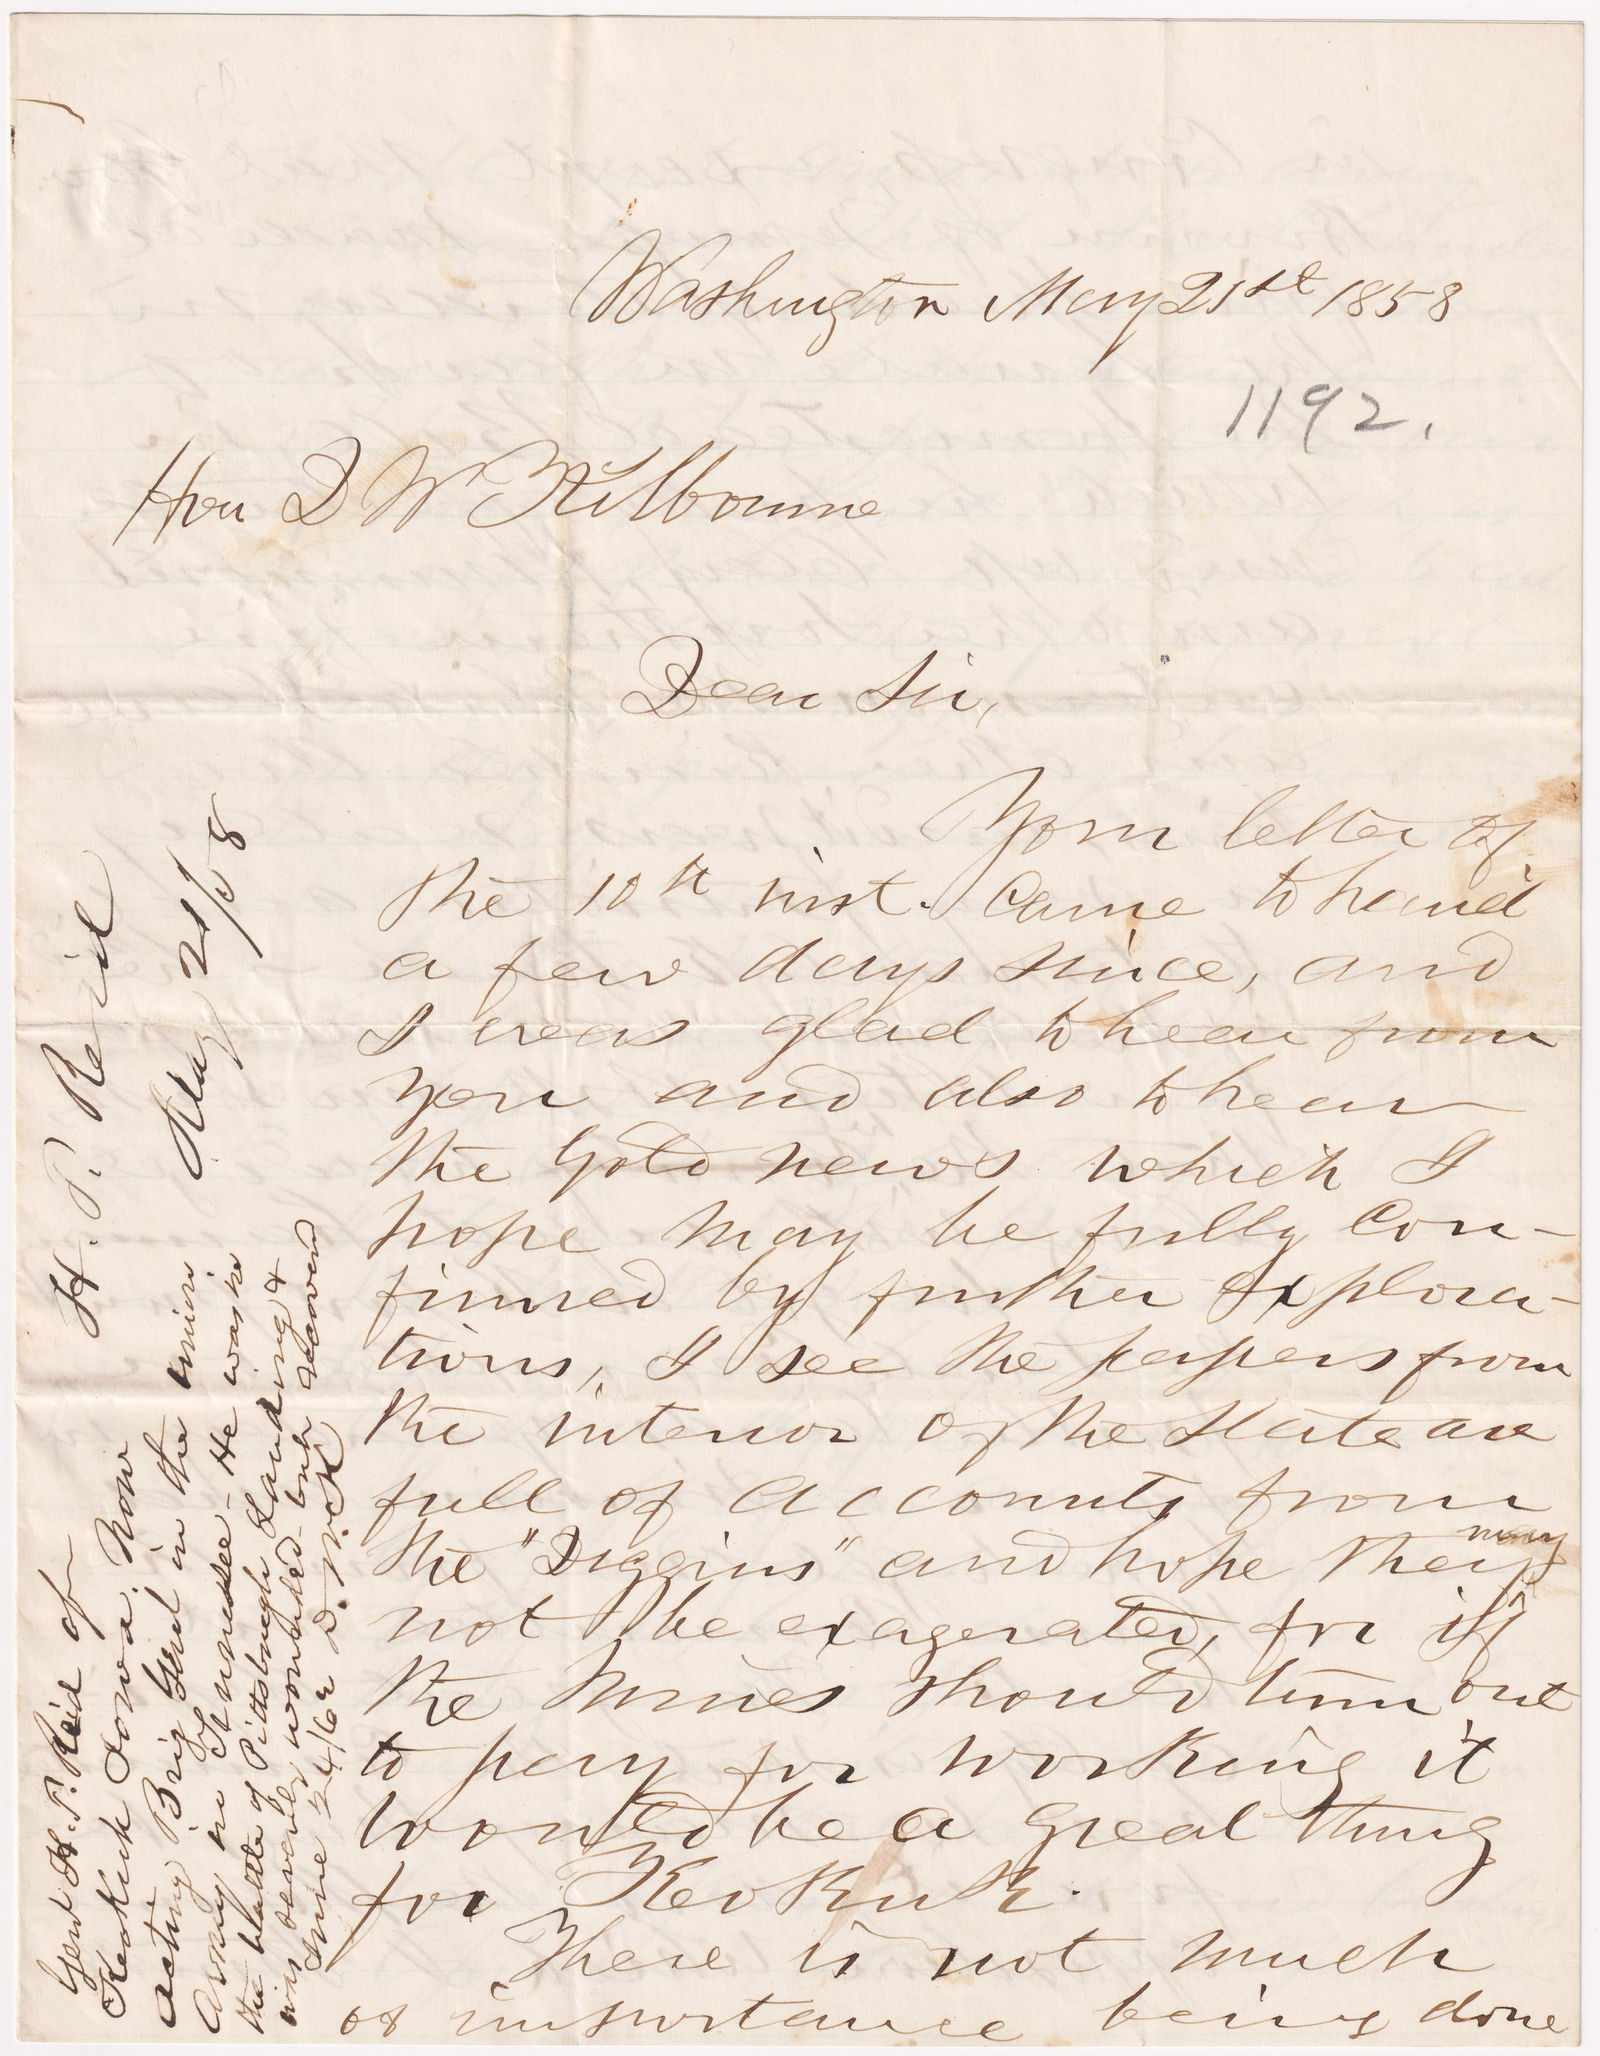 Washington May 21st 1858
1192.
Hon D W Kilbourne
Dear Sir,
Your letter of
the 10th inst. Came to hand
a few days since, and
I was glad to hear from
you and also to hear
the Gold news which I
hope may be fully Con-
firmed by further explora-
tions, I see the papers from
the interior of the State are
full of accounts from
the "Diggins" and hope they may
not be exagerated, for if
the Mines should turn out
to pay for working it
would be a great thing
for Keokuk.
There is not much
of importance being done
H. T. Reid
May 21/58
Genl H. T. Reid of
Keokuk Iowa. Now
acting Brig Genl in the union
Army in Tennessee - He was in
the battle of Pittsburgh Landing &
was severely wounded - but recovered
June 24/62 D. W. K